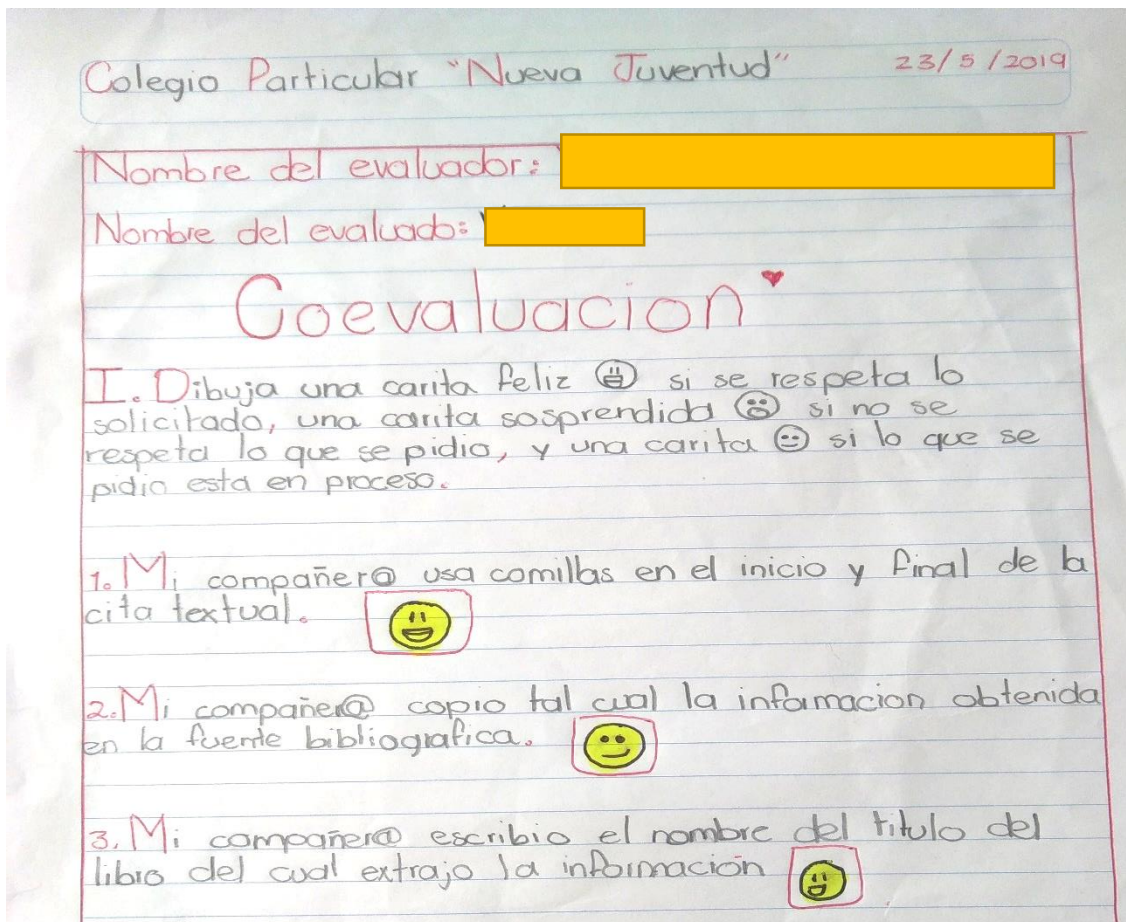 Colegio Particular "Nueva Juventud" 23/5/2019
Nombre del evaluador:
Nombre del evaluado:
Coevaluacion
I. Dibuja una carita feliz si se respeta lo
solicitado, una carita sosprendida si no se
respeta lo que se pidio, y una carita si lo que se
pidio esta en proceso.
1. Mi compañer@ usa comillas en el inicio y final de la
cita textual.
2. Mi compañer@ copio tal cual la informacion obtenida
en la fuente bibliografica.
3. Mi compañer@ escribio el nombre del titulo del
libro del cual extrajo la información